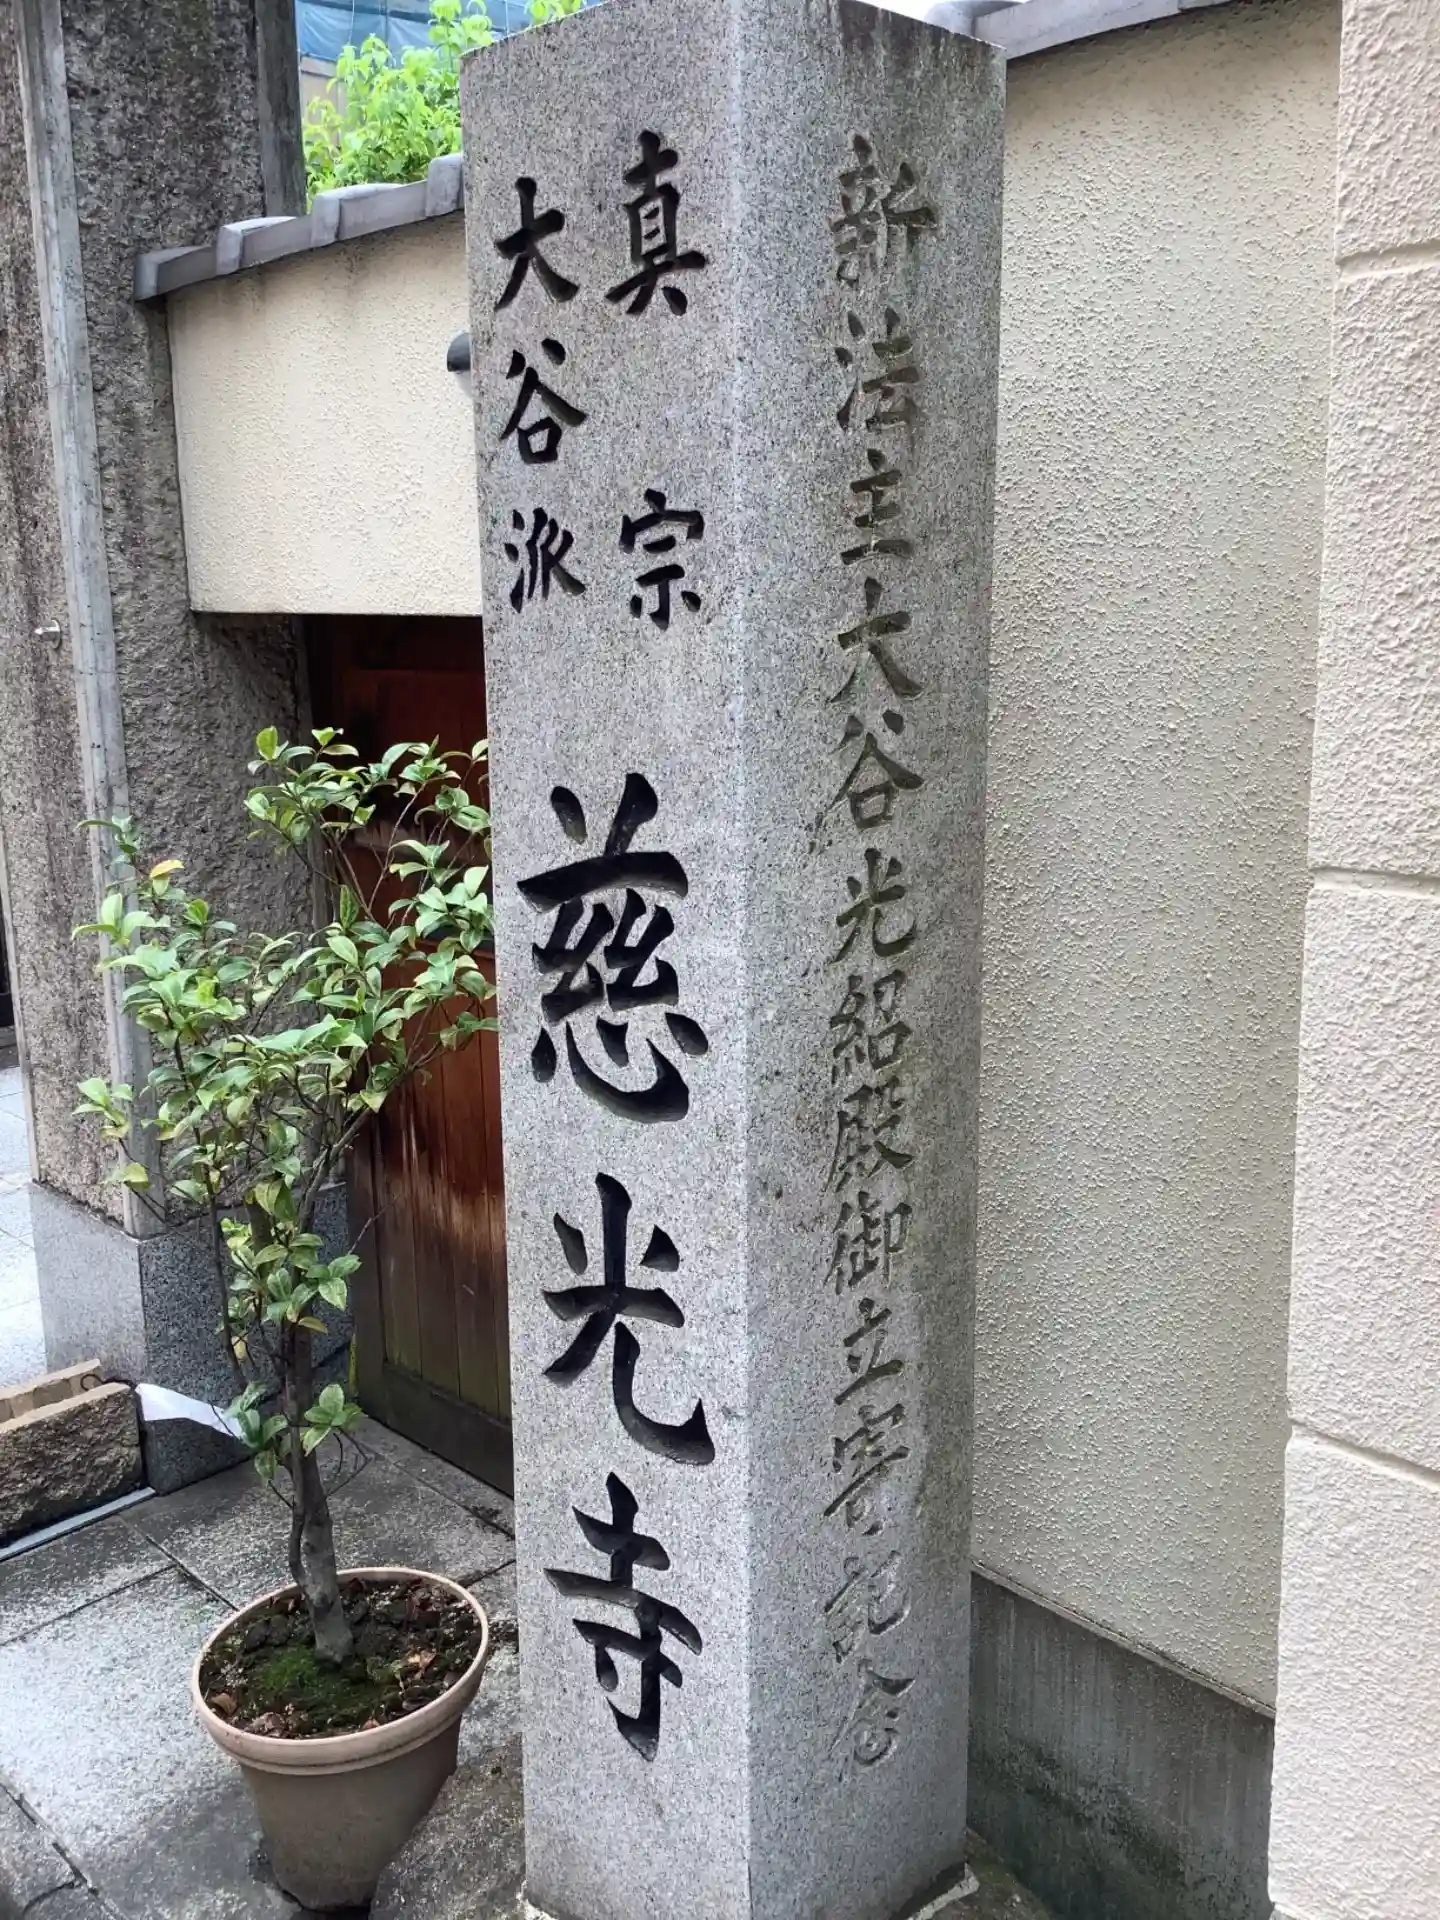 真宗
大谷派
慈光寺
新法主大谷光紹殿御立寄記念